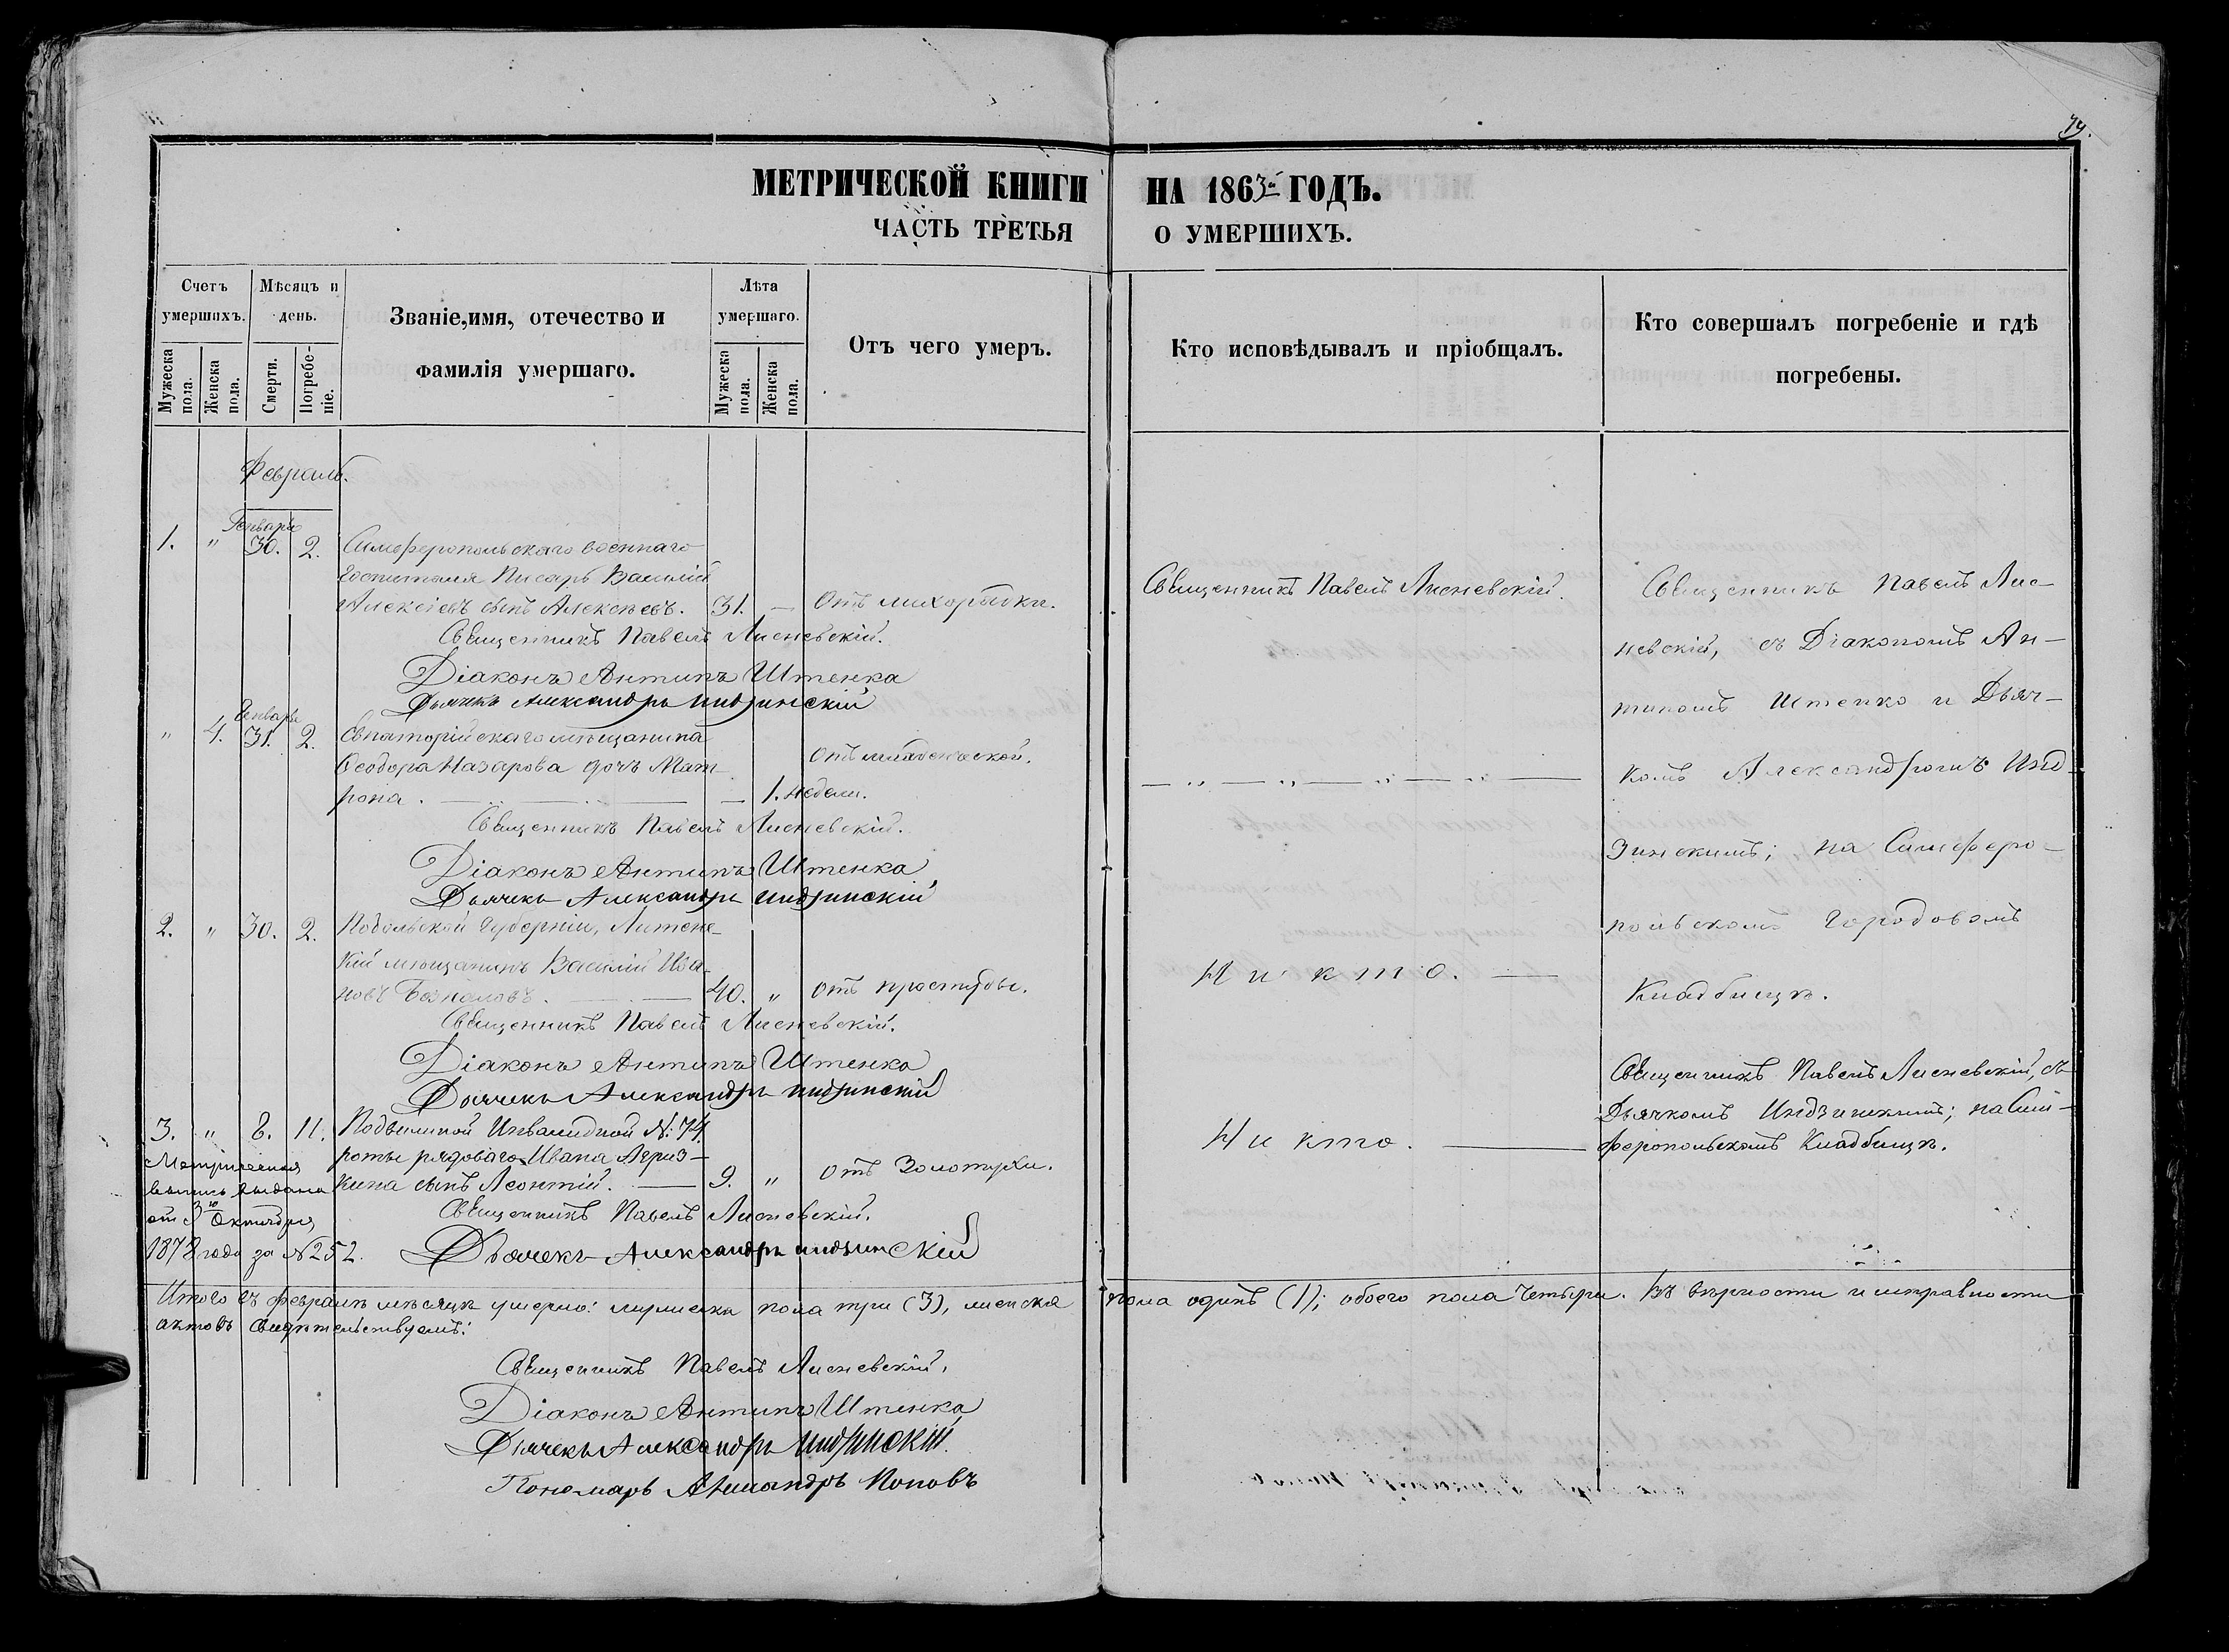 79.
МЕТРИЧЕСКОЙ КНИГИ НА 1863й ГОДЪ.
ЧАСТЬ ТРЕТЬЯ О УМЕРШИХЪ.
Счетъ умершихъ.
Мужеска пола.
Женска пола.
Мѣсяцъ и день.
Смерти.
Погребе-ніе.
Званіе,имя, отечество и
фамилія умершаго.
Лѣта умершаго.
Мужеска пола.
Женска пола.
Отъ чего умеръ.
Кто исповѣдывалъ и пріобщалъ.
Кто совершалъ погребеніе и гдѣ
погребены.
Февраль.
Генваря
1. " 30. 2. Симферопольскаго военнаго
госпиталя Писарь Василій
Алексіевъ сынъ Алексѣевъ. 31. — Отъ лихорадки.
Священникъ Павелъ Лисневскій.
Діаконъ Антипъ Штенка
Дьячекъ Александръ Индзинскій
Генваря
" 4. 31. 2. Евпаторійскаго мѣщанина
Ѳеодора Назарова дочь Мат-
рона. — 1. недели. Отъ младенческой.
Священникъ Павелъ Лисневскій.
Діаконъ Антипъ Штенка
Дьячекъ Александръ Индзинскій
2. " 30. 2. Подольской Губерніи, Литенс-
кій мѣщанинъ Василій Ива-
новъ 40. " Отъ простуды.
Священникъ Павелъ Лисневскій.
Діаконъ Антипъ Штенка
Дьячекъ Александръ Индзинскій
3. " 8. 11. Подвижной Инвалидной №. 74.
роты рядоваго Ивана
сынъ Леонтій. — 9. " Отъ Золотухи.
Священникъ Павелъ Лисневскій.
Дьячекъ Александръ Индзинскій
Метрическая
выпись выдана
от 3го Октября
1878 года за №252.
Священникъ Павелъ Лисневскій.
— " — " — " — " —
Никто. —
Никто. —
Священникъ Павелъ Лис-
невскій, съ Діакономъ Ан-
типомъ Штенко и Дьяч-
комъ Александромъ Инд-
зинскимъ; на Симферо-
польскомъ Городовомъ
Кладбищѣ.
Священникъ Павелъ Лисневскій, съ
Дьячкомъ Индзинскимъ; на Сим-
феропольскомъ Кладбищѣ.
Итого въ февралѣ мѣсяцѣ умерло: мужеска пола три (3), женска пола одинъ (1); обоего пола четыре. Въ вѣрности и исправности
актовъ свидѣтельствуемъ:
Священникъ Павелъ Лисневскій.
Діаконъ Антипъ Штенка
Дьячекъ Александръ Индзинскій.
Пономарь Александръ Поповъ